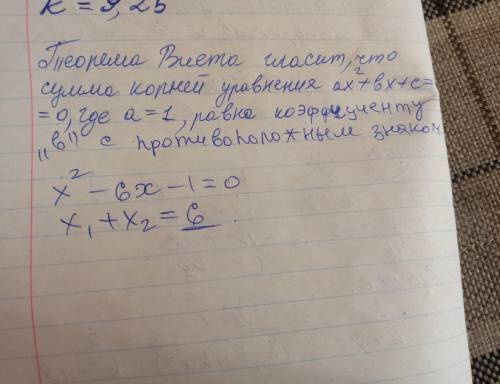 k = 9,25
Теорема Виета гласит, что
сумма корней уравнения ax²+вx+c=
=0, где a=1, равна коэффициенту
„в" с противоположным знаком
x² - 6x - 1 = 0
x₁ + x₂ = 6.